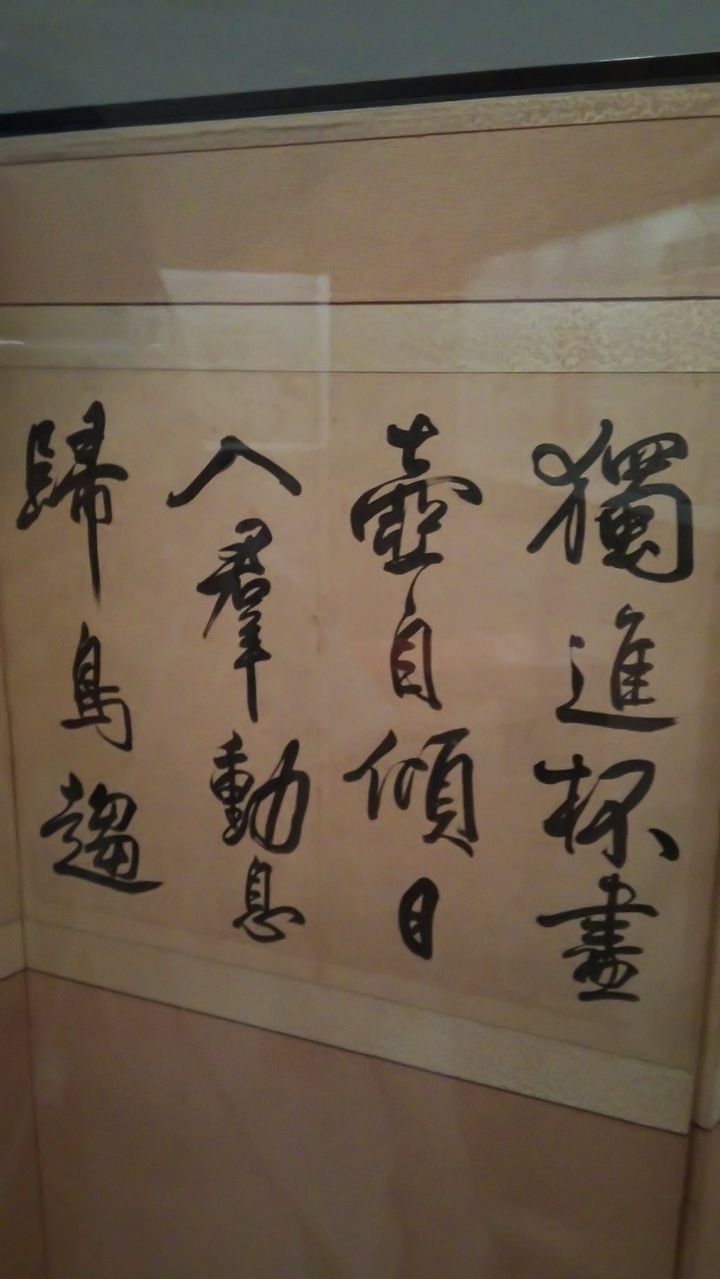 獨進杯盡
壺自傾日
入羣動息
歸鳥趨